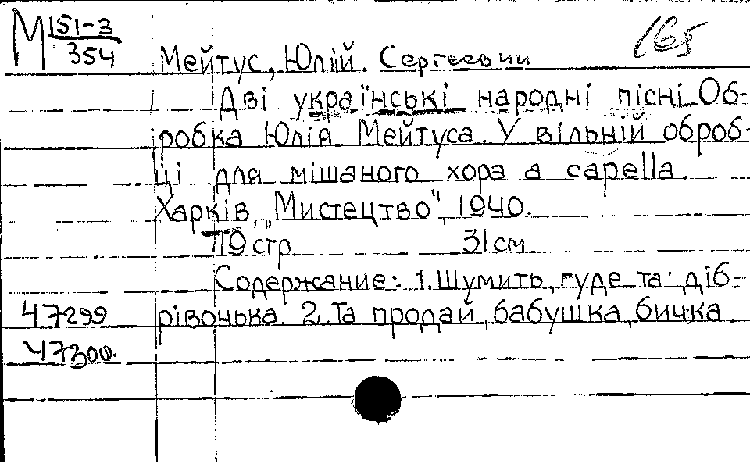 М 151-3
354
165
Мейтус, Юлій Сергеевич
Дві українські народні пісні Об-
робка Юлія Мейтуса. У вільній оброб-
ці для мішаного хора a capella.
Харків, "Мистецтво", 1940.
19 стр 31 см
Содержание: 1. Шумить, гуде та діб-
47299 рівонька 2. Та продай, бабушка, бичка
47300.